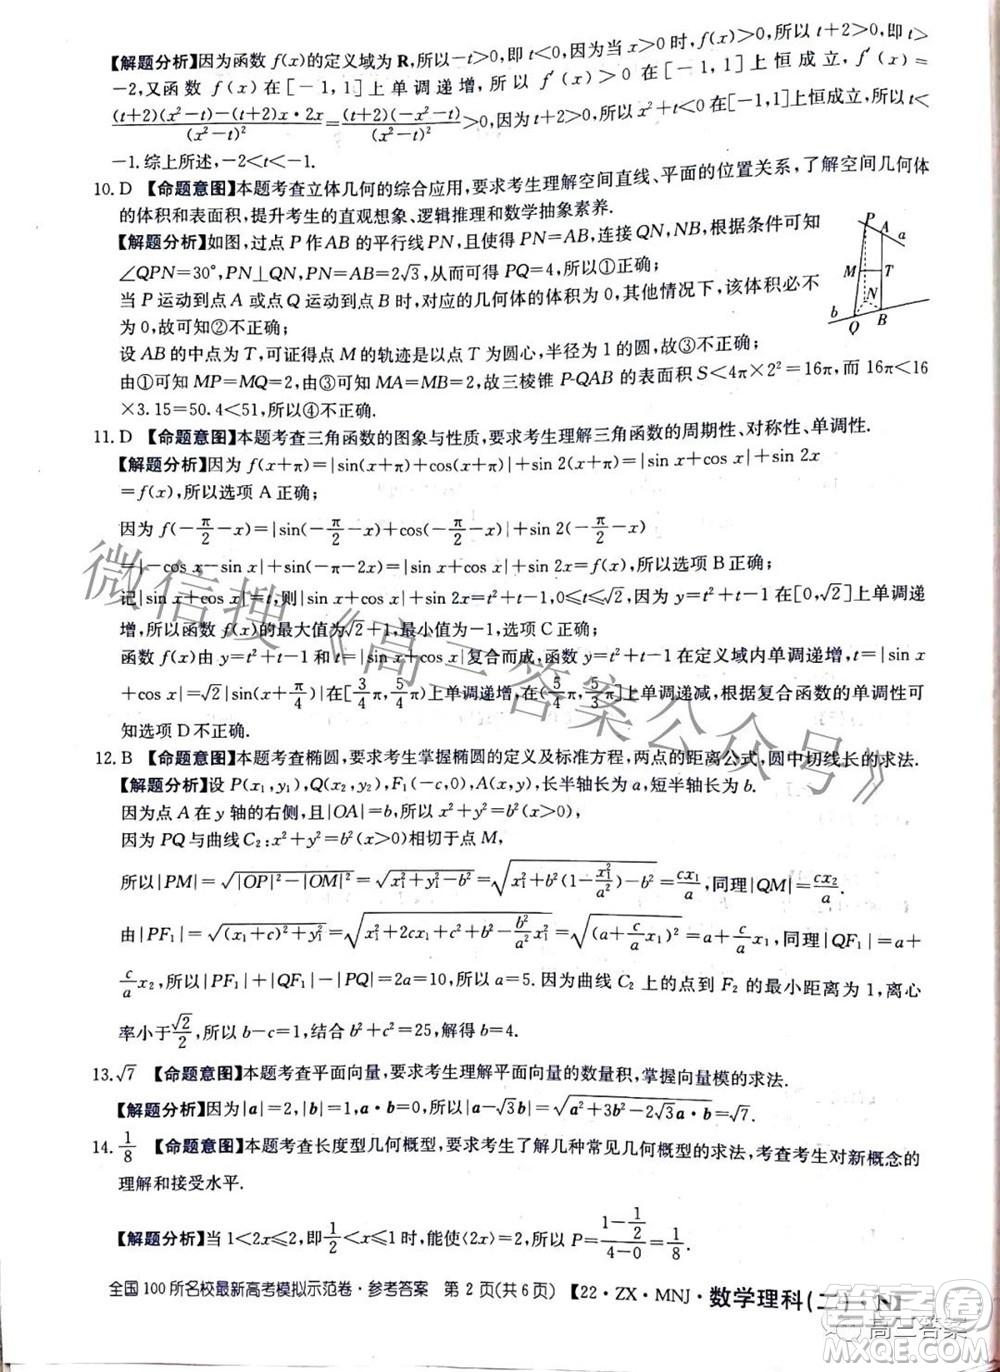 【解题分析】因为函数 f(x)的定义域为 R,所以-t>0,即 t<0.因为当 x>0 时,f(x)>0,所以 t+2>0,即 t>
-2,又函数 f(x)在[-1,1]上单调递增,所以 f′(x)>0 在[-1,1]上恒成立,即 f′(x)=
\frac{(t+2)(x²-t)-(t+2)x·2x}{(x²-t)²}=\frac{(t+2)(-x²-t)}{(x²-t)²}>0,因为 t+2>0,所以 x²+t<0 在[-1,1]上恒成立,所以 t<
-1.综上所述,-2<t<-1.
10. D 【命题意图】本题考查立体几何的综合应用,要求考生理解空间直线、平面的位置关系,了解空间几何体
的体积和表面积,提升考生的直观想象、逻辑推理和数学抽象素养.
【解题分析】如图,过点 P 作 AB 的平行线 PN,且 PN=AB,连接 QN,NB,根据条件可知
∠QPN=30°,PN⊥QN,PN=AB=2√3,从而可得 PQ=4,所以①正确;
当 P 运动到点 A 或点 Q 运动到点 B 时,对应的几何体的体积为 0,其他情况下,该体积必不
为 0,故可知②不正确;
设 AB 的中点为 T,计算可知点 M 的轨迹是以点 T 为圆心,半径为 1 的圆,故③不正确;
由①可知 MP=MQ=2,由③可知 MA=MB=2,故三棱锥 P-QAB 的表面积 S<4π×2²=16π,而 16π<16
×3.15=50.4<51,所以④不正确.
P
A
a
M
T
N
b
Q
B
11. D 【命题意图】本题考查三角函数的图象与性质,要求考生理解三角函数的周期性、对称性、单调性.
【解题分析】因为 f(x+π)=|sin(x+π)+cos(x+π)|+sin 2(x+π)=|sin x+cos x|+sin 2x
=f(x),所以选项 A 正确;
因为 f(-\frac{π}{2}-x)=|sin(-\frac{π}{2}-x)+cos(-\frac{π}{2}-x)|+sin 2(-\frac{π}{2}-x)
=|-cos x-sin x|+sin(-π-2x)=|sin x+cos x|+sin 2x=f(x),所以选项 B 正确;
记|sin x+cos x|=t,则|sin x+cos x|+sin 2x=t²+t-1,0≤t≤√2,因为 y=t²+t-1 在[0,√2]上单调递
增,所以函数 f(x)的最大值为√2+1,最小值为-1,选项 C 正确;
函数 f(x)由 y=t²+t-1 和 t=|sin x+cos x|复合而成,函数 y=t²+t-1 在定义域内单调递增,t=|sin x+
cos x|=√2|sin(x+\frac{π}{4})|在[\frac{3}{4}π,\frac{5}{4}π]上单调递增,在[\frac{5}{4}π,\frac{5}{3}π]上单调递减,根据复合函数的单调性可
知选项 D 不正确.
12. B 【命题意图】本题考查椭圆,要求考生掌握椭圆的定义及标准方程,两点的距离公式,圆中切线长的求法.
【解题分析】设 P(x₁,y₁),Q(x₂,y₂),F₁(-c,0),A(x,y),长半轴长为 a,短半轴长为 b.
因为点 A 在 y 轴的右侧,且|OA|=b,所以 x²+y²=b²(x>0).
因为 PQ 与曲线 C₂:x²+y²=b²(x>0)相切于点 M,
所以|PM|=√(|OP|²-|OM|²)=√(x₁²+y₁²-b²)=√(x₁²+b²(1-\frac{x₁²}{a²})-b²)=\frac{cx₁}{a},同理|QM|=\frac{cx₂}{a}.
由|PF₁|=√((x₁+c)²+y₁²)=√(x₁²+2cx₁+c²+b²-\frac{b²}{a²}x₁²)=√((a+\frac{c}{a}x₁)²)=a+\frac{c}{a}x₁,同理|QF₁|=a+
\frac{c}{a}x₂,所以|PF₁|+|QF₁|-|PQ|=2a=10,所以 a=5.因为曲线 C₂ 上的点到 F₂ 的最小距离为 1,离心
率小于\frac{√2}{2},所以 b-c=1,结合 b²+c²=25,解得 b=4.
13. √7 【命题意图】本题考查平面向量,要求考生理解平面向量的数量积,掌握向量模的求法.
【解题分析】因为|a|=2,|b|=1,a·b=0,所以|a-√3b|=√(a²+3b²-2√3a·b)=√7.
14. \frac{1}{8} 【命题意图】本题考查长度型几何概型,要求考生了解几种常见几何概型的求法,考查考生对新概念的
理解和接受水平.
【解题分析】当 1<2x≤2,即\frac{1}{2}<x≤1 时,[2x]=2,所以 P=\frac{1-\frac{1}{2}}{4-0}=\frac{1}{8}.
全国 100 所名校最新高考模拟示范卷·参考答案 第 2 页(共 6 页) 【22·ZX·MNJ·数学理科(二)·N】
微信搜《高三答案公众号》
答案圈
高三答案
MXQE.COM